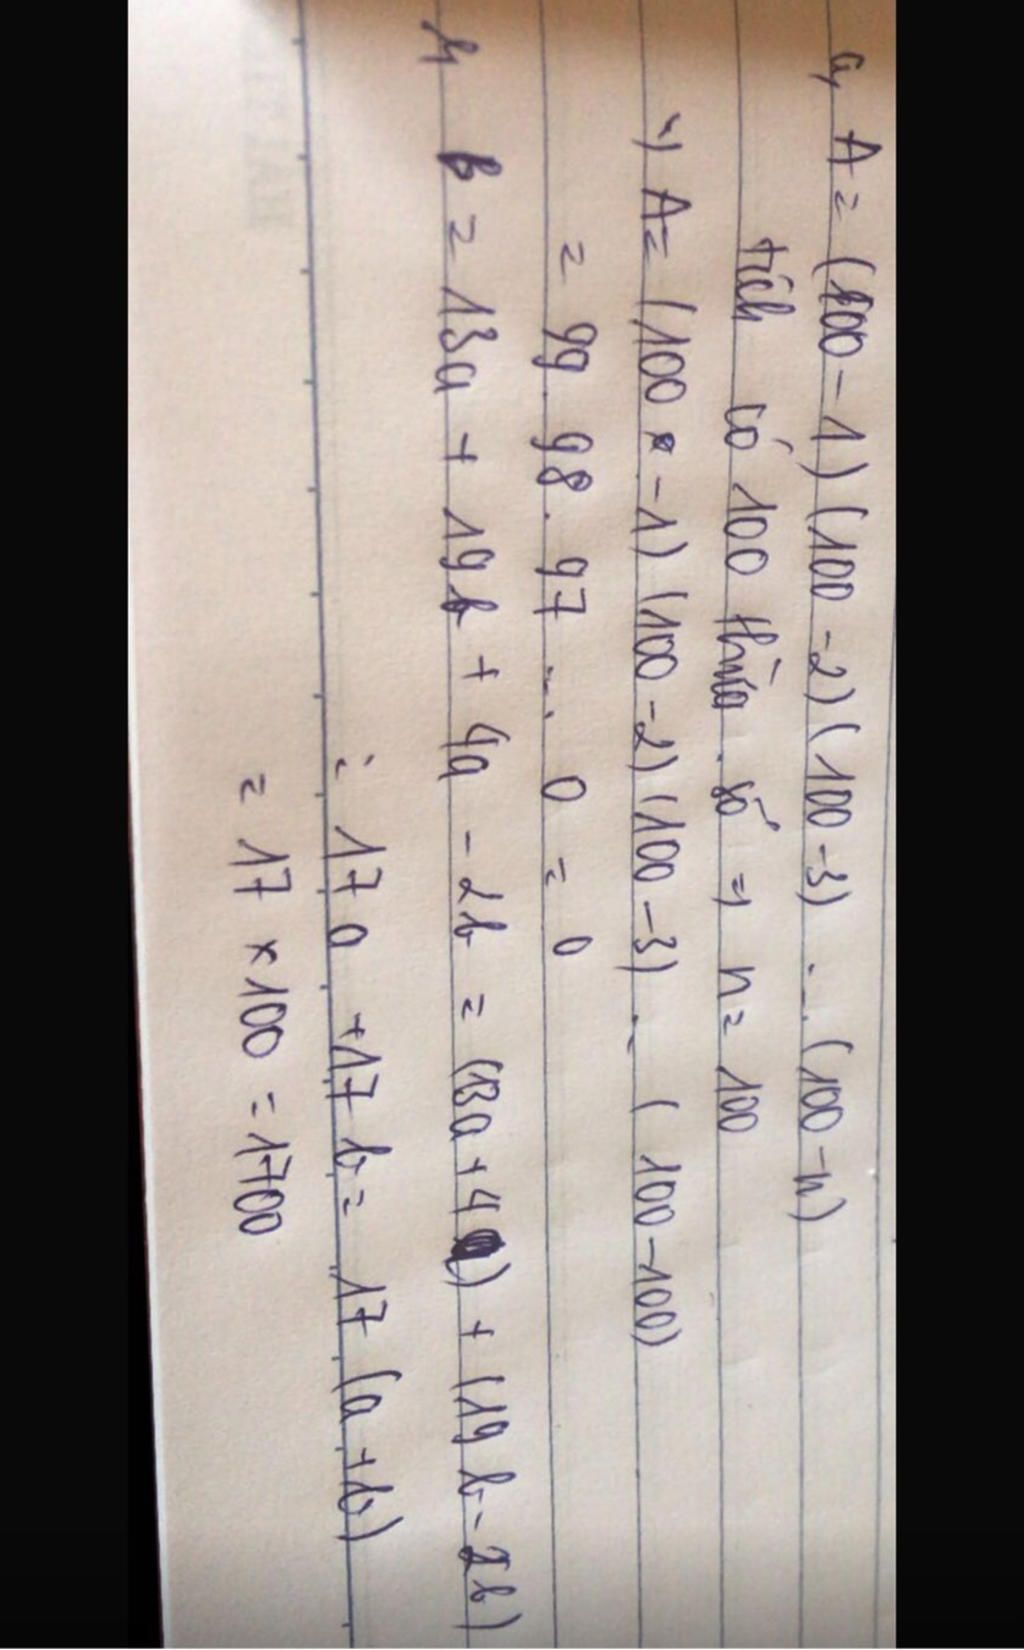 a, A = (100 - 1) (100 - 2) (100 - 3) ... (100 - n)
tích có 100 thừa số => n = 100
=> A = (100 - 1) (100 - 2) (100 - 3) ... (100 - 100)
= 99. 98. 97 ... 0 = 0
b, B = 13a + 19b + 4a - 2b = (13a + 4a) + (19b - 2b)
= 17a + 17b = 17 (a + b)
= 17 × 100 = 1700